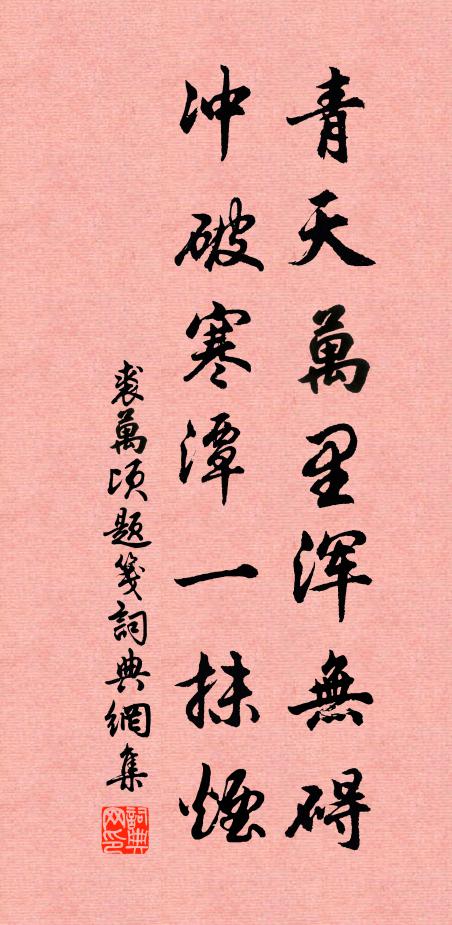 青天萬里浑無碍
冲破寒潭一抹煙
裘萬頃題箋詞典網集
詞典
网印